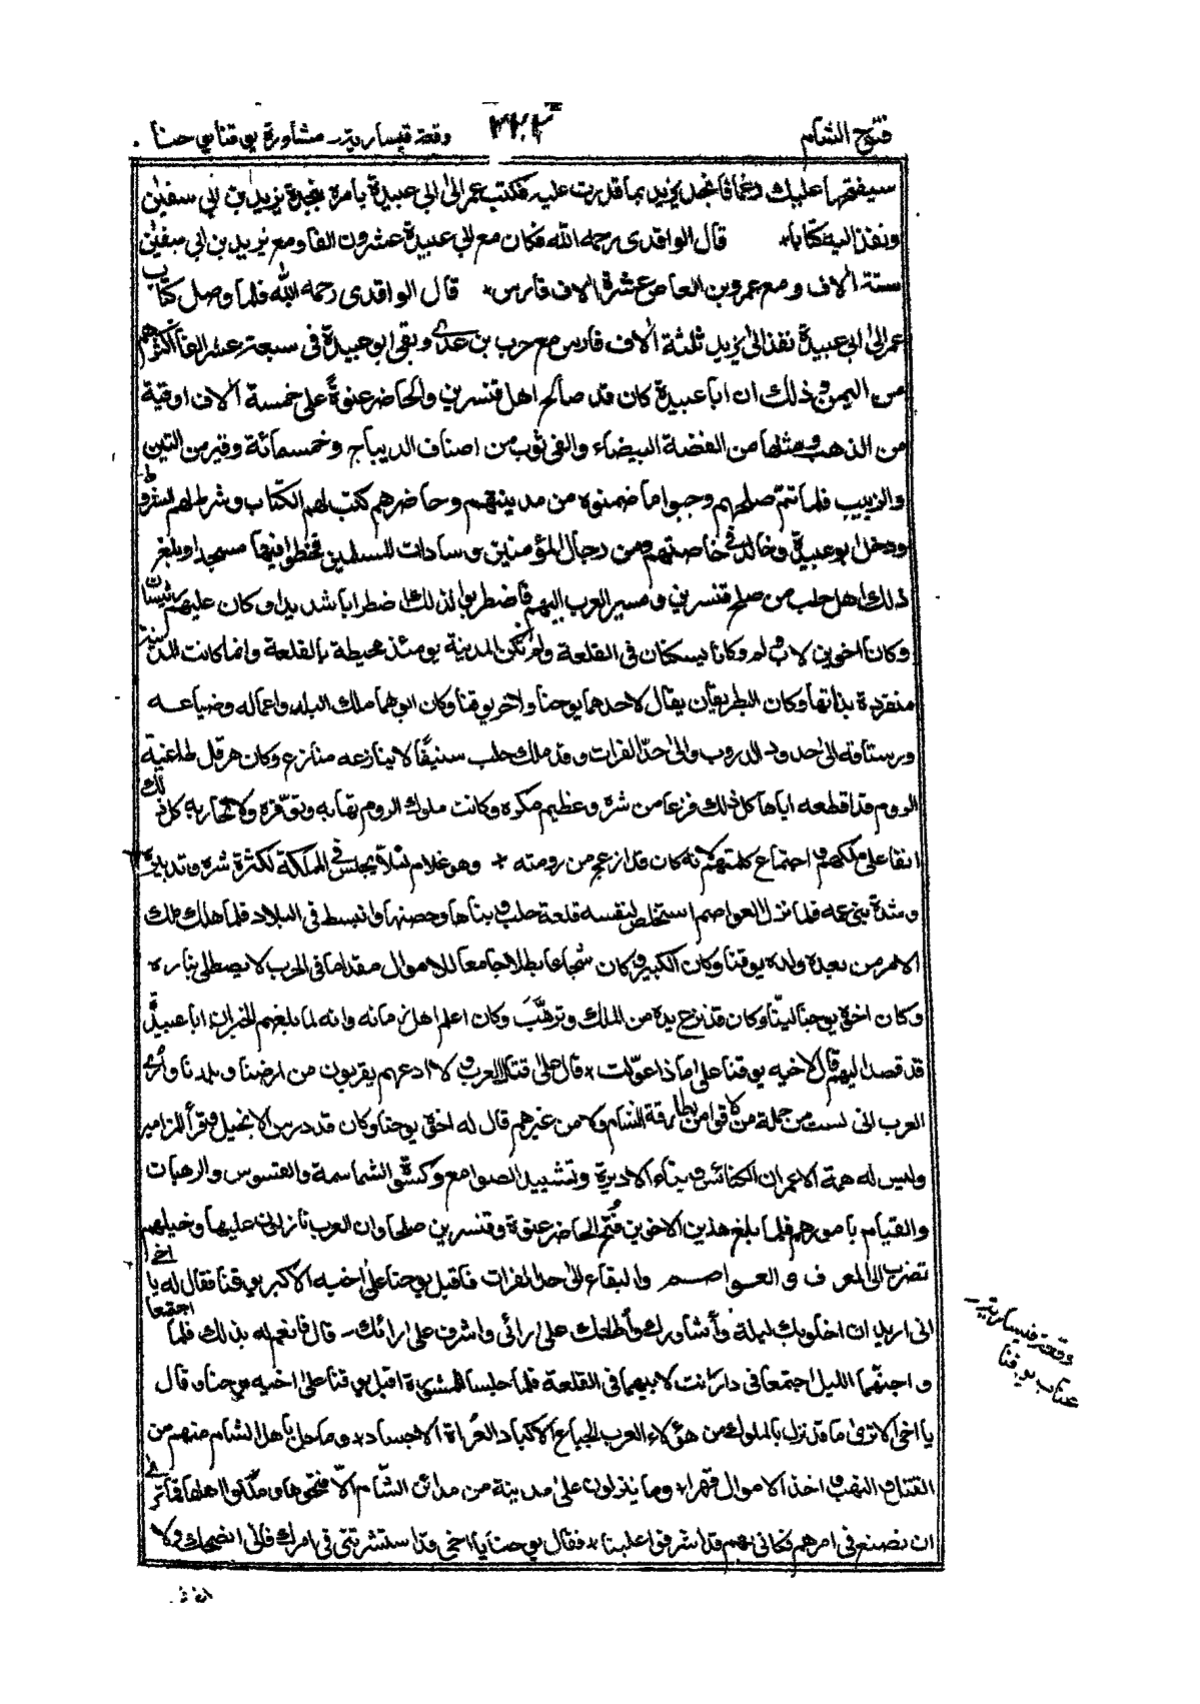 فتوح الشام ٣٢٢ وقعة قيساريہ۔ مشاورة يوقنا يوحنا
سيفتحها عليك وعافا نجد يزيد بما قدرت عليہ فكتب عمر الى ابي عبيدة يأمره بنجدة يزيد بن ابي سفين
ونفذ اليه كتابا* قال الواقدى رحمه الله فكان مع ابي عبيدة عشرون الفا ومع يزيد بن ابي سفين
ستة الاف ومع عمرو بن العاص عشرة الاف فارس* قال الواقدى رحمه الله فلما وصل كتاب
عمر الى ابي عبيدة نفذ الى يزيد ثلثة الاف فارس مع حرب بن عدي وبقي ابو عبيدة في سبعة عشر الفا اكثرهم
من اليمن وذلك ان ابا عبيدة كان قد صالح اهل قنسرين والحاضر عنوةً على خمسة الاف اوقية
من الذهب ومثلها من الفضة البيضاء والفي ثوب من اصناف الديباج وخمسمائة وقر من التين
والزبيب فلما تمّ صلحهم وجبوا ما ضمنوه من مدينتهم وحاضرهم كتب لهم الكتاب وشرط لهم الشروط
ودخل ابو عبيدة وخالد في خاصتهم ومن رجال المؤمنين وسادات المسلمين فخطوا فيها مسجدا وبلغ
ذلك اهل حلب من صلح قنسرين ومسير العرب اليهم فاضطربوا لذلك اضطرابا شديدا وكان عليهم رئيسان
وكانا اخوين لاب وام وكانا يسكنان في القلعة ولم تكن المدينة يومئذ محيطة بالقلعة وانما كانت المدينة
منفردة بذاتها وكان البطريقان يقال لاحدهما يوحنا والاخر يوقنا وكان ابوهما ملك البلد واعماله وضياعه
ورستاقه الى حدود الدروب والى حدّ الفرات وقد ملك حلب سنينًا لا ينازعه منازع وكان هرقل طاغية
الروم قد اقطعه اياها كل ذلك فزعا من شره وعظيم مكره وكانت ملوك الروم تهابه وتوقّره ولا تحاربه كل ذلك
ابقا على ملكهم واجتماع كلمتهم لانه كان قد ازعج من رومته * وهو غلام لئلا يجلس في المملكة لكثرة شره وتدبيره
وشدة بني عمه فلما نزل العواصم استخلص لنفسه قلعة حلب وبناها وحصنها وانبسط في البلاد فلما هلك ملك
الامر من بعده ولده يوقنا وكان الكبير وكان شجاعا بطلا جامعا للاموال مقداما في الحرب لا يصطلى بناره
وكان اخوه يوحنا ليّنا وكان قد نزح يده من الملك وترهّبَ وكان اعلم اهل زمانه وانه لما بلغهم الخبر ان ابا عبيدةَ
قد قصد اليهم قال لاخيه يوقنا على ماذا عوّلت * قال على قتال العرب ولا ادعهم يقربون من ارضنا وبلدنا وأُري
العرب اني لست من جملة من لاقوا من بطارقة الشام ولا من غيرهم قال له اخوه يوحنا وكان قد درس الانجيل وقرأ المزامير
وليس له همة الا عمران الكنائس وبناء الاديرة وتشييد الصوامع وكسوة الشمامسة والقسوس والرهبان
والقيام بامورهم فلما بلغ هذين الاخوين فُتح الحاضر عنوة وقنسرين صلحا وان العرب نازلون عليها وخيلهم
تضرب الى المعرف والعواصم والبقاء الى حد الفرات فاقبل يوحنا على اخيه الاكبر يوقنا فقال له يا اخي
انى اريد ان اخلو بك ليلة وأشاورك وأطلعك على رائي واشرف على رائك۔ قال فانعم له بذلك فلما اجتمعا
واجنّهما الليل اجتمعا في دار كانت لابيهما في القلعة فلما جلسا للمشورة اقبل يوقنا على اخيه يوحنا وقال
يا اخي الا ترى ما قد نزل بالملوك من هؤلاء العرب الجياع الاكباد العُراة الاجساد* وما حل باهل الشام منهم من
القتل والنهب واخذ الاموال قهرا* وما ينزلون على مدينة من مدائن الشام الا فتحوها وملكوا اهلها فما ترى
ان نصنع في امرهم فكاني بهم قد اشرفوا علينا* فقال يوحنا يا اخي قد استشرتني في امرك فاني انصحك ولا
وقعة قيساريہ۔
عتاب يوقنا